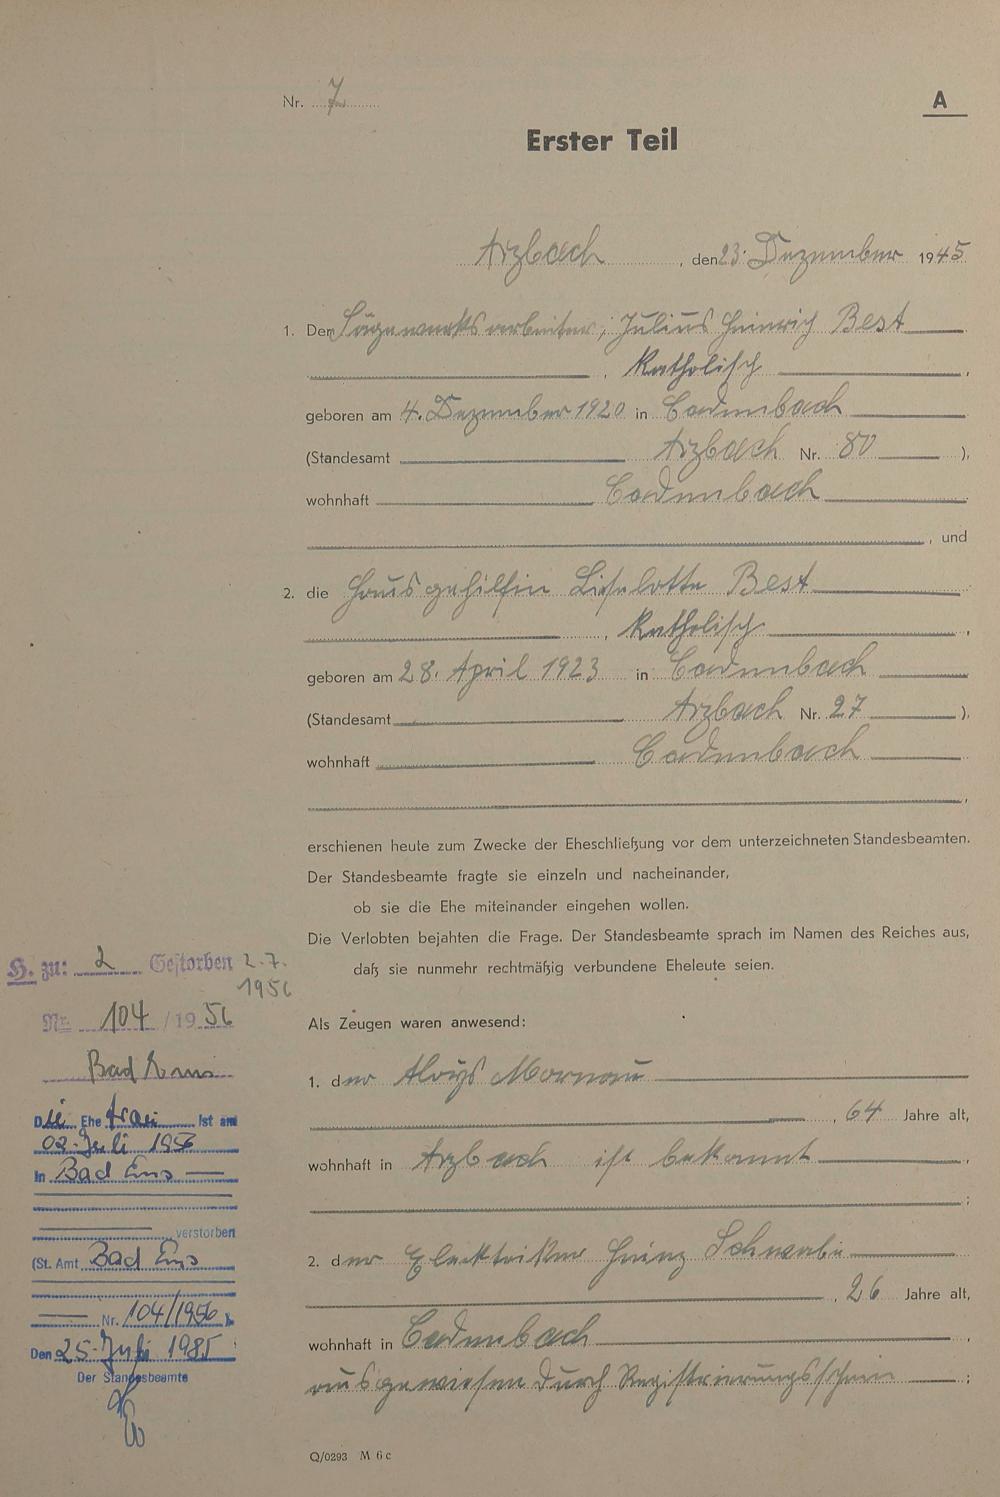 Nr. 7
A
Erster Teil
Arzbach, den 23. Dezember 1945
1. Der Sägewerksarbeiter, Julius Heinrich Best
, katholisch,
geboren am 4. Dezember 1920 in Cadenbach
(Standesamt Arzbach Nr. 80 ),
wohnhaft Cadenbach
, und
2. die Hausgehilfin Lieselotte Best
, katholisch,
geboren am 28. April 1923 in Cadenbach
(Standesamt Arzbach Nr. 27 ),
wohnhaft Cadenbach
,
erschienen heute zum Zwecke der Eheschließung vor dem unterzeichneten Standesbeamten.
Der Standesbeamte fragte sie einzeln und nacheinander,
ob sie die Ehe miteinander eingehen wollen.
Die Verlobten bejahten die Frage. Der Standesbeamte sprach im Namen des Reiches aus,
daß sie nunmehr rechtmäßig verbundene Eheleute seien.
Als Zeugen waren anwesend:
1. der Aloys
, 64 Jahre alt,
wohnhaft in Arzbach ist bekannt,
;
2. der Elektriker Heinz Schwalb
, 26 Jahre alt,
wohnhaft in Cadenbach,
ausgewiesen durch Registrierungsschein;
H. zu: 2 Gestorben 2.7.
1956
Nr. 104 / 1956
Bad Ems
Die Ehefrau ist am
02. Juli 1956
in Bad Ems
verstorben
(St. Amt Bad Ems
Nr. 104/1956 ).
Den 25. Juli 1985
Der Standesbeamte
Q/0293 M 6 c